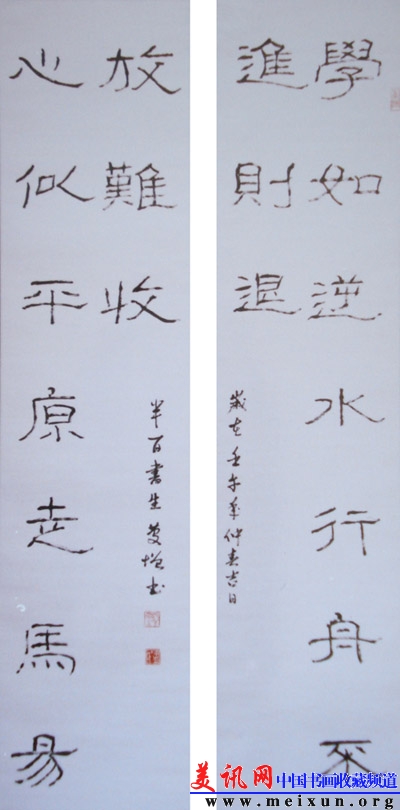 學如逆水行舟不
進則退
歲在壬午年仲春吉日
心似平原走馬易
放難收
半百書生 书
美讯网 中国书画收藏频道
www.meixun.org